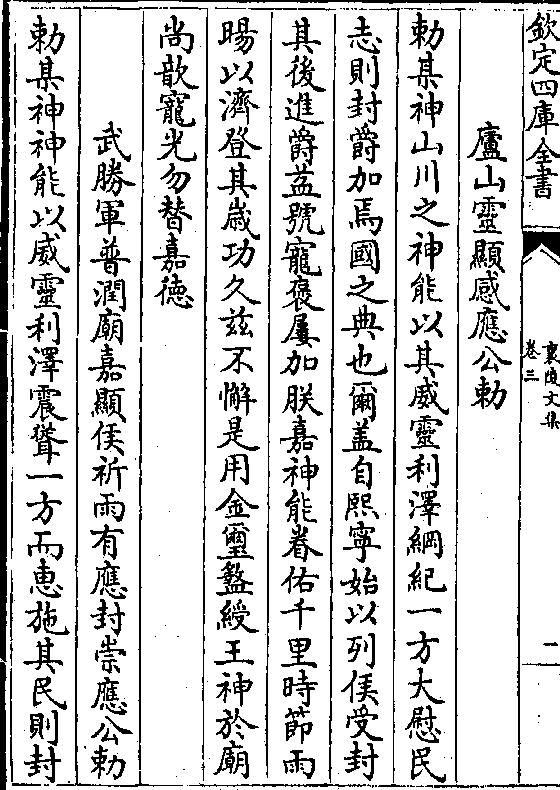 欽定四庫全書
襄陵文集
卷三
一
廬山靈顯感應公勅
勅某神山川之神能以其威靈利澤綱紀一方大慰民
志則封爵加焉國之典也爾盖自熙寧始以列侯受封
其後進爵益號寵褒屢加朕嘉神能眷佑千里時節雨
暘以濟登其歲功久兹不懈是用金璽盭綬王神於廟
尚歆寵光勿替嘉德
武勝軍普潤廟嘉顯侯祈雨有應封崇應公勅
勅某神神能以威靈利澤震聳一方而惠施其民則封